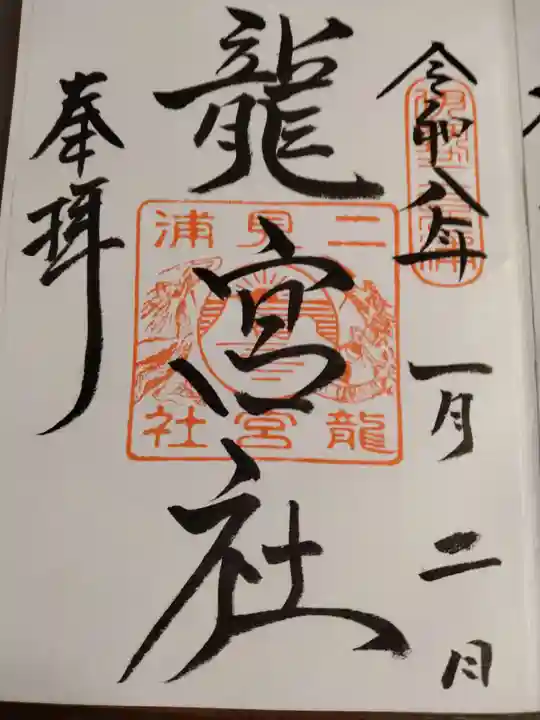 令和八年一月二日
龍宮社
奉拝
二見浦
龍宮社